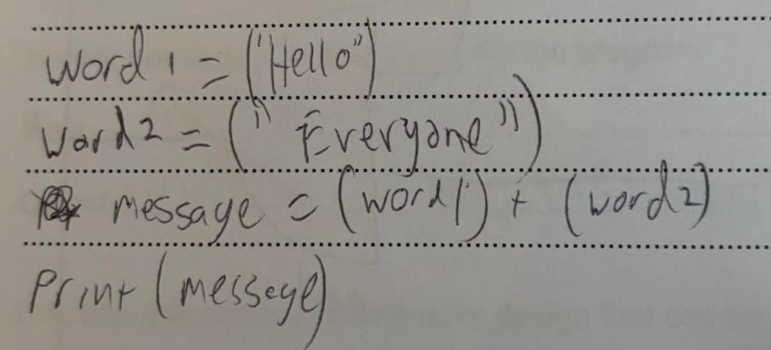 word 1 = ("Hello")
word2 = (" Everyone")
message = (word1) + (word2)
Print (message)